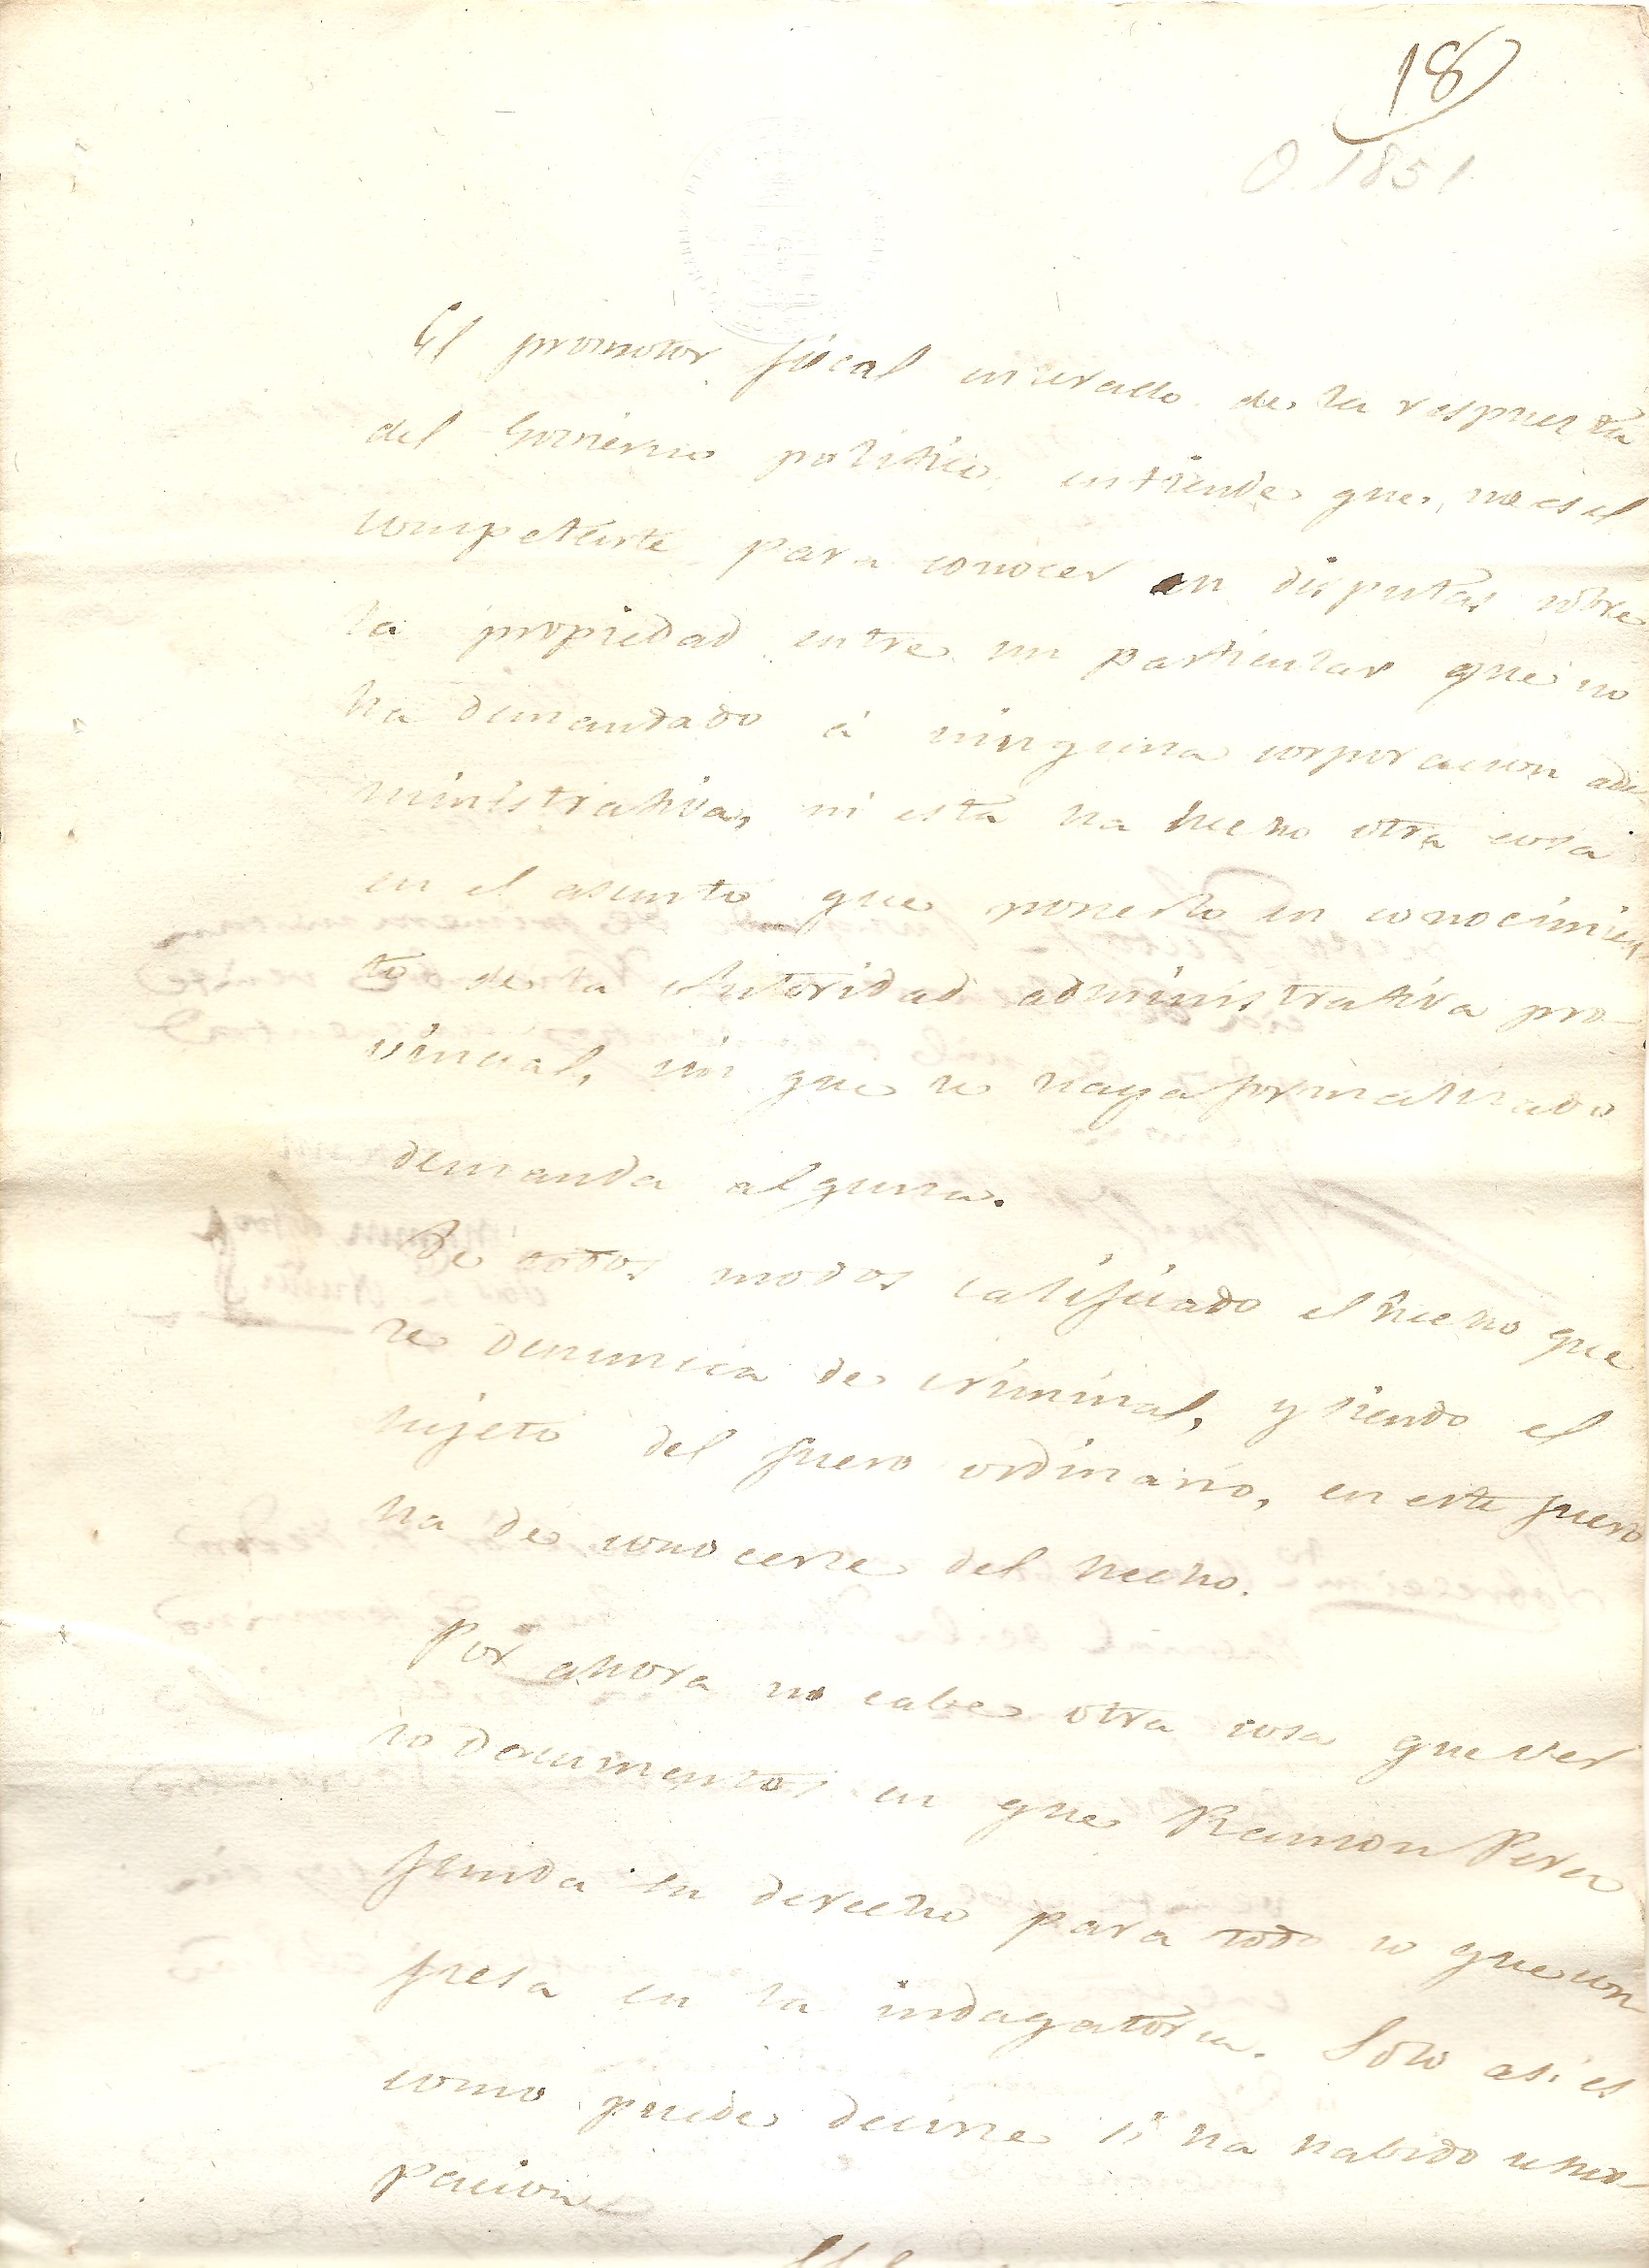 18
O. 1851
El promotor fiscal enterado de la respuesta
del Gobierno politico, entiende que, no es el
competente para conocer en disputas sobre
la propiedad entre un particular que no
ha demandado á ninguna corporacion ad
ministrativa, ni esta ha hecho otra cosa
en el asunto que ponerlo en conocimien
to de la Autoridad administrativa pro-
vincial, sin que se haya formalizado
demanda alguna.
De todos modos calificado el hecho que
se denuncia de criminal, y siendo el
sujeto del fuero ordinario, en este fuero
ha de conocerse del hecho.
Por ahora no cabe otra cosa que ver
los documentos en que Ramon Perez
funda su derecho para todo lo que con
fiesa en la indagatoria. Solo asi es
como puede decirse si ha habido usur
pacion